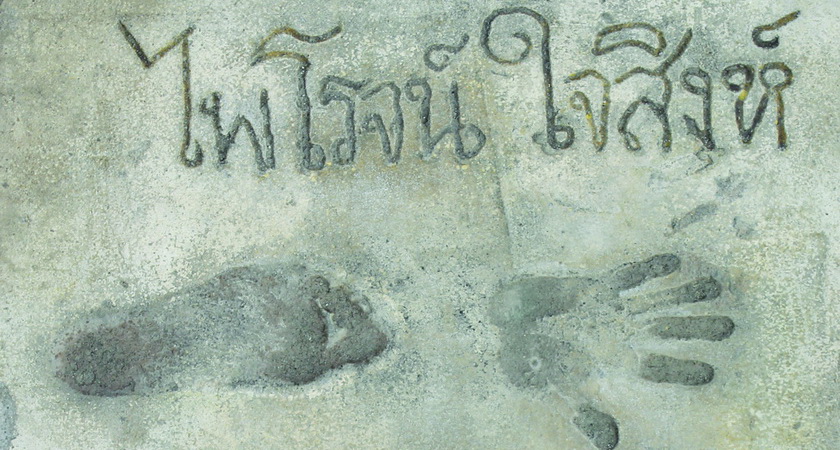 ไพโรจน์ ใจสิงห์